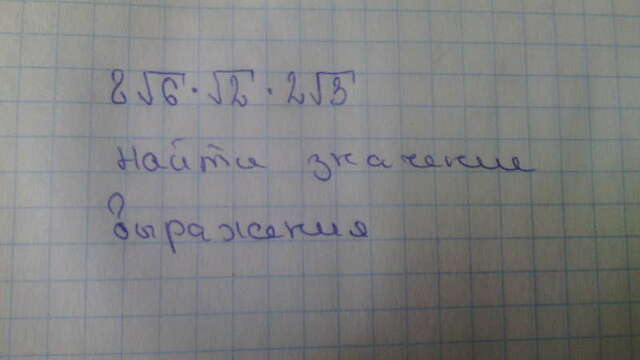 8√6 · √2 · 2√3
Найти значение
выражения